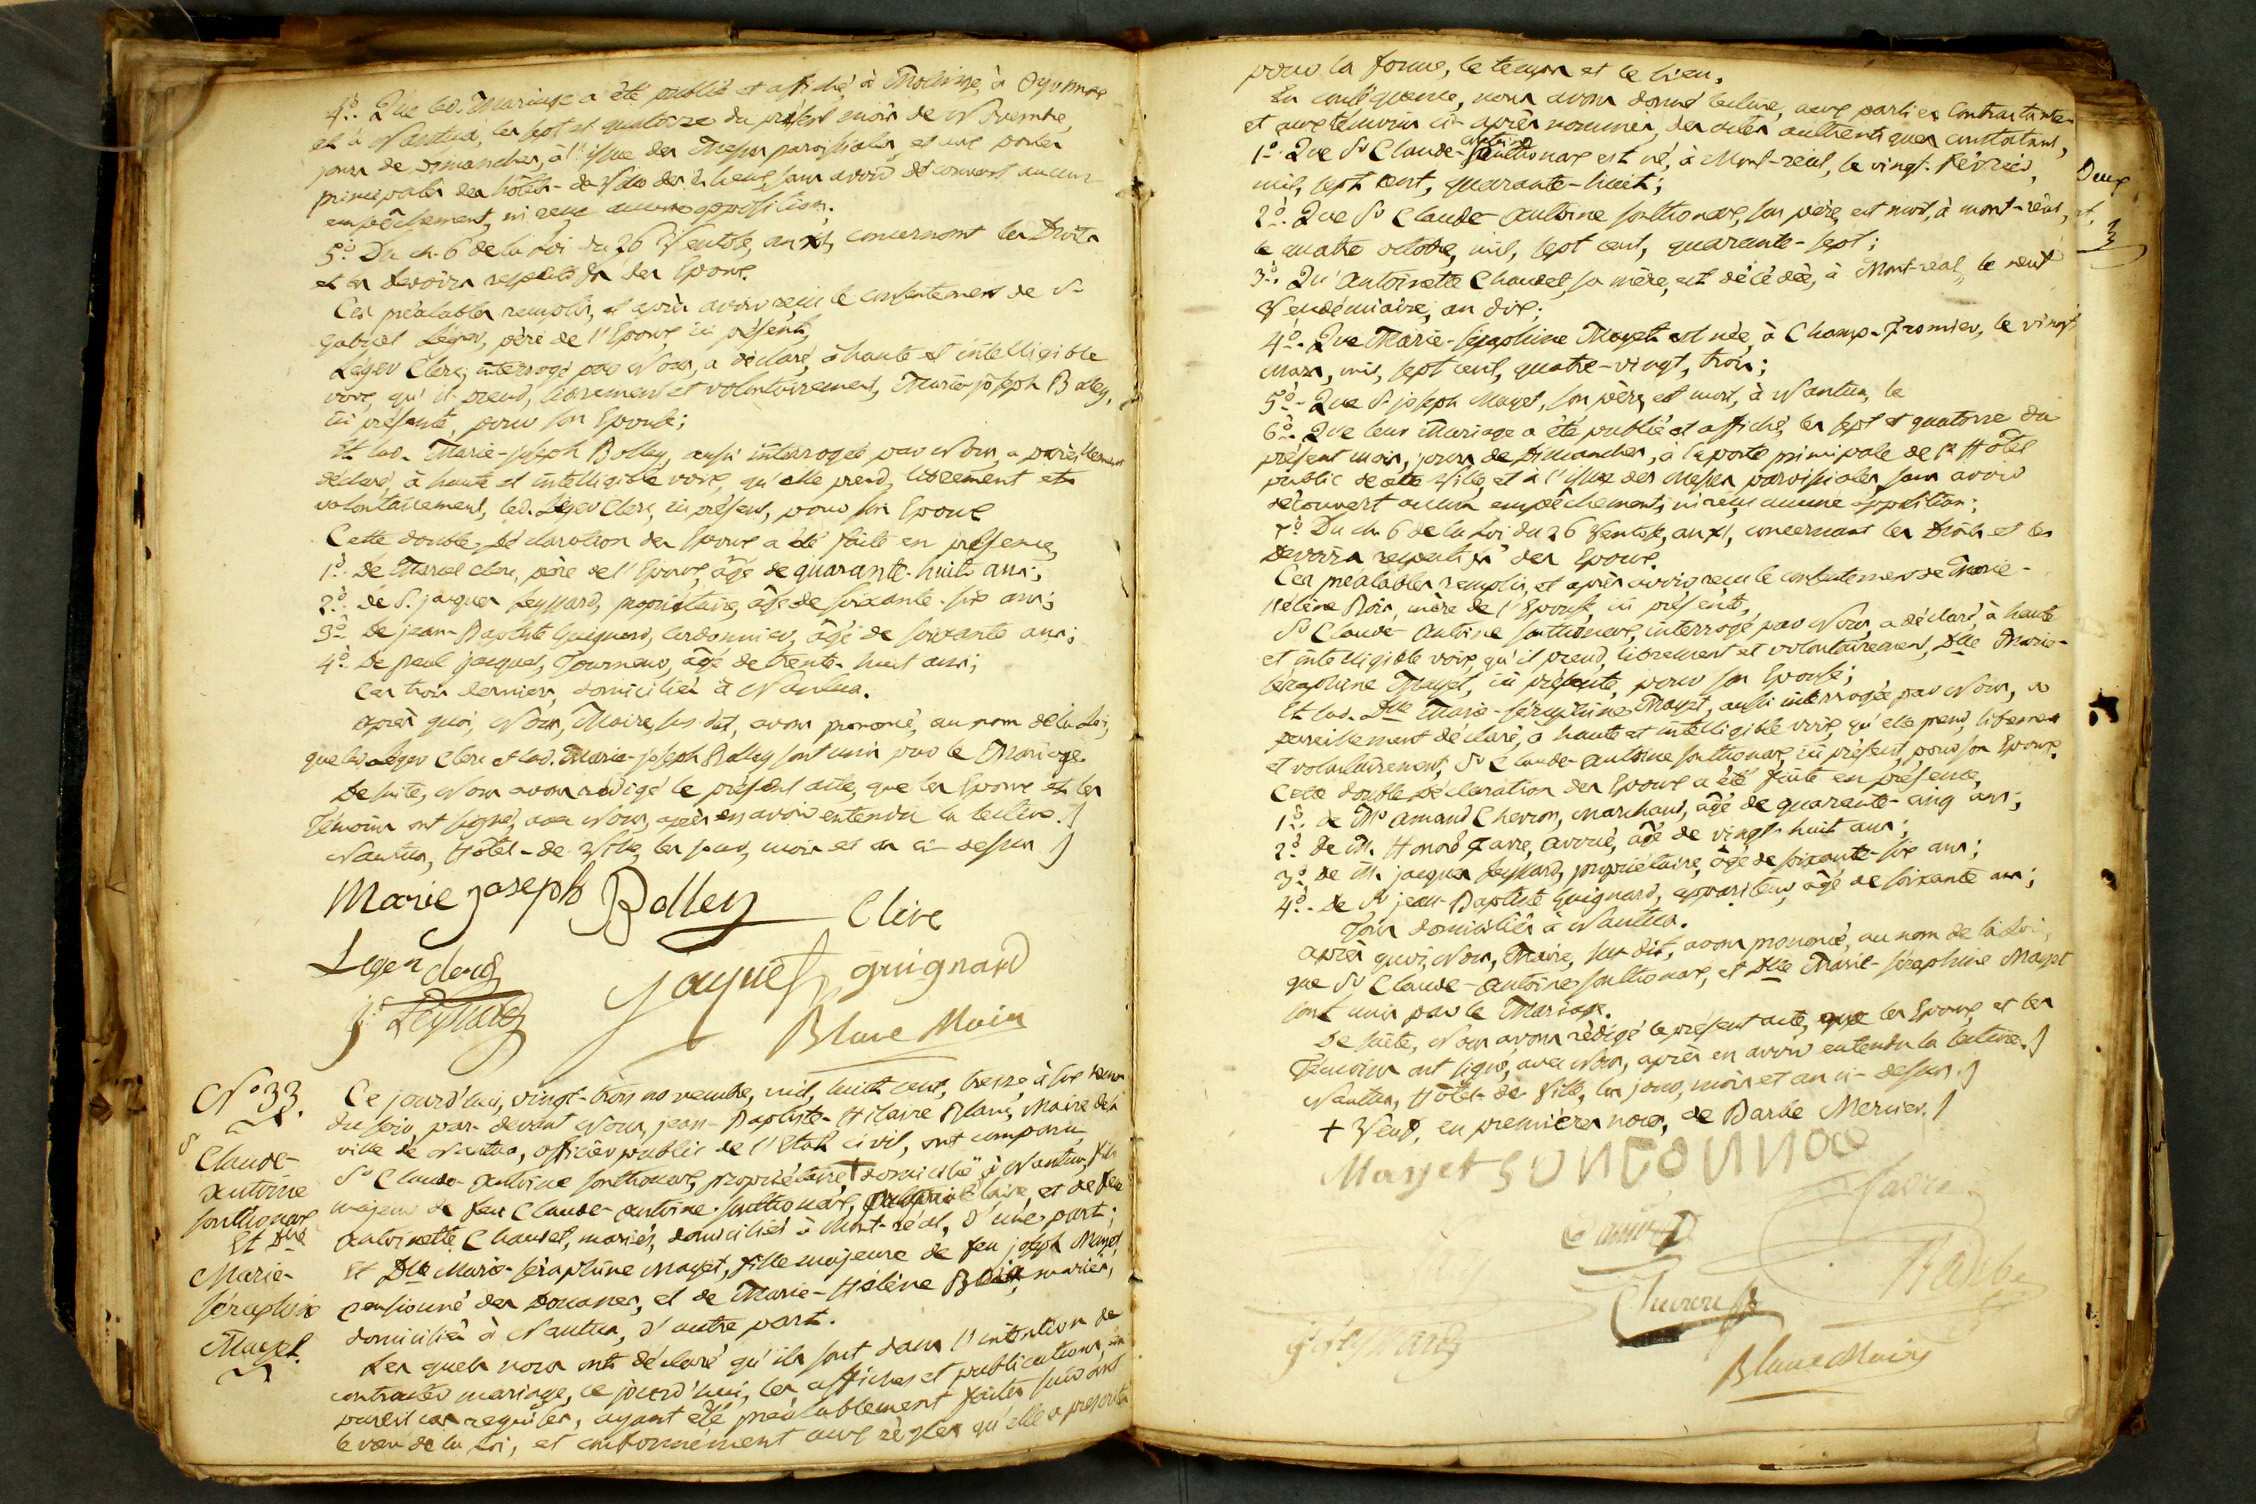 4.° Que led. Mariage a été publié et affiché, à Molinge, à Oyonnax
et à Nantua, les sept et quatorze du présent mois de Novembre,
jours de Dimanches, à l'issue des Messes paroissiales, et aux portes
principales des hôtels-de-Ville des d. lieux, sans avoir découvert aucun
empêchement, ni reçu aucune opposition.
5.° Du ch. 6 de la Loi du 26 Ventôse, an XI, concernant les Droits
et les Devoirs respectifs des Epoux.
Ces préalables remplis, et après avoir reçu le consentement de Sr
Gabriel Léger, père de l'Epoux, ici présent,
Léger Clerc, interrogé par Nous, a déclaré, à haute et intelligible
voix, qu'il prend, librement et volontairement, Marie-joseph Bolley,
ici présente, pour son Epouse;
Et lad. Marie-joseph Bolley, aussi interrogée par Nous, a pareillement
déclaré, à haute et intelligible voix, qu'elle prend, librement et
volontairement, led. Léger Clerc, ici présent, pour son Epoux
Cette double Déclaration des Epoux a été faite en présence,
1.° De Marcel Clerc, père de l'Epoux, âgé de quarante-huit ans;
2.° de S. jacques Leyssard, propriétaire, âgé de soixante-six ans;
3.° De jean-Baptiste Guignard, cordonnier, âgé de soixante ans;
4.° De Paul jacquet, Tourneur, âgé de trente-huit ans;
Ces trois derniers domiciliés à Nantua.
Après quoi, Nous, Maire, sus dit, avons prononcé, au nom de la Loi,
que led. Léger Clerc et lad. Marie-joseph Bolley sont unis par le Mariage.
De suite, Nous avons rédigé le présent acte, que les Epoux et les
Témoins ont signé, avec Nous, après en avoir entendu la lecture.
Nantua, Hôtel-de-Ville, les jour, mois et an ci-dessus
Marie joseph Bolley Clerc
Leger clerc
Jaquet guignard
js Leyssard
Blanc Maire
N° 33.
Sr
Claude-
Antoine
Sonthonax
Et Dlle
Marie-
Séraphine
Mayet.
Ce jourd'hui, vingt-trois novembre, mil, huit cent, treize, à six heures
du soir, par-devant Nous, jean-Baptiste-Hilaire Blanc, Maire de la
ville de Nantua, officier public de l'Etat civil, ont comparu
Sr Claude-Antoine Sonthonax, propriétaire + domicilié à Nantua, fils
majeur de feu Claude-Antoine Sonthonax, propriétaire, et de feue
Antoinette Chaudet, mariés, domiciliés à Mont-réal, d'une part;
Et Dlle Marie-Séraphine Mayet, fille majeure de feu joseph Mayet,
pensionné des Douanes, et de Marie-Hélène Roix, mariés,
domiciliés à Nantua, d'autre part.
Les quels nous ont déclaré qu'ils sont dans l'intention de
contracter mariage, ce jourd'hui, les affiches et publications, en
pareil cas requises, ayant été préalablement faites suivant
le vœu de la Loi, et conformément aux règles qu'elle a prescrites
pour la forme, le temps et le lieu.
En conséquence, nous avons donné lecture, aux parties Contractantes
et aux témoins ci-après nommés, des actes authentiques constatant,
1.° Que Sr Claude-Antoine Sonthonax est né, à Mont-réal, le vingt-Février,
mil, sept cent, quarante-huit;
Deux
2.° Que Sr Claude-Antoine Sonthonax, son père, est mort, à Mont-réal,
le quatre octobre, mil, sept cent, quarante-sept;
3.° Qu'Antoinette Chaudet, sa mère, est décédée, à Mont-réal, le neuf
Vendémiaire, an dix;
4.° Que Marie-Séraphine Mayet est née, à Champ-Fromier, le vingt
Mars, mil, sept cent, quatre-vingt, trois;
5.° Que Sr joseph Mayet, son père, est mort, à Nantua, le
6.° Que leur Mariage a été publié et affiché, les sept et quatorze du
présent mois, jours de Dimanches, à la porte principale de l'Hôtel
public de cette Ville, et à l'issue des messes paroissiales, sans avoir
découvert aucun empêchement, ni reçu aucune opposition;
7.° Du ch. 6 de la Loi du 26 Ventôse, an XI, concernant les Droits et les
Devoirs respectifs des Epoux.
Ces préalables remplis, et après avoir reçu le consentement de Marie-
Hélène Roix, mère de l'Epouse, ici présente,
Sr Claude-Antoine Sonthonax, interrogé par Nous, a déclaré, à haute
et intelligible voix, qu'il prend, librement et volontairement, Dlle Marie-
Séraphine Mayet, ici présente, pour son Epouse;
Et lad. Dlle Marie-Séraphine Mayet, aussi interrogée par Nous, a
pareillement déclaré, à haute et intelligible voix, qu'elle prend, librement
et volontairement, Sr Claude-Antoine Sonthonax, ici présent, pour son Epoux.
Cette double Déclaration des Epoux a été faite en présence,
1.° De Mr Amand Chevron, marchand, âgé de quarante-cinq ans;
2.° De M. Honoré Favre, avoué, âgé de vingt-huit ans;
3.° De M. jacques Leyssard, propriétaire, âgé de soixante-six ans;
4.° De Sr jean-Baptiste Guignard, appariteur, âgé de soixante ans;
Tous domiciliés à Nantua.
Après quoi, Nous, Maire, sus dit, avons prononcé, au nom de la Loi,
que Sr Claude-Antoine Sonthonax, et Dlle Marie-Séraphine Mayet
sont unis par le Mariage.
De suite, Nous avons rédigé le présent acte, que les Epoux et les
Témoins ont signé, avec Nous, après en avoir entendu la lecture.
Nantua, Hôtel-de-Ville, les jour, mois et an ci-dessus.
+ Veuf, en premières noces, de Barbe Mercier.
Mayet
favre
Chevron
js Leyssard
Blanc Maire